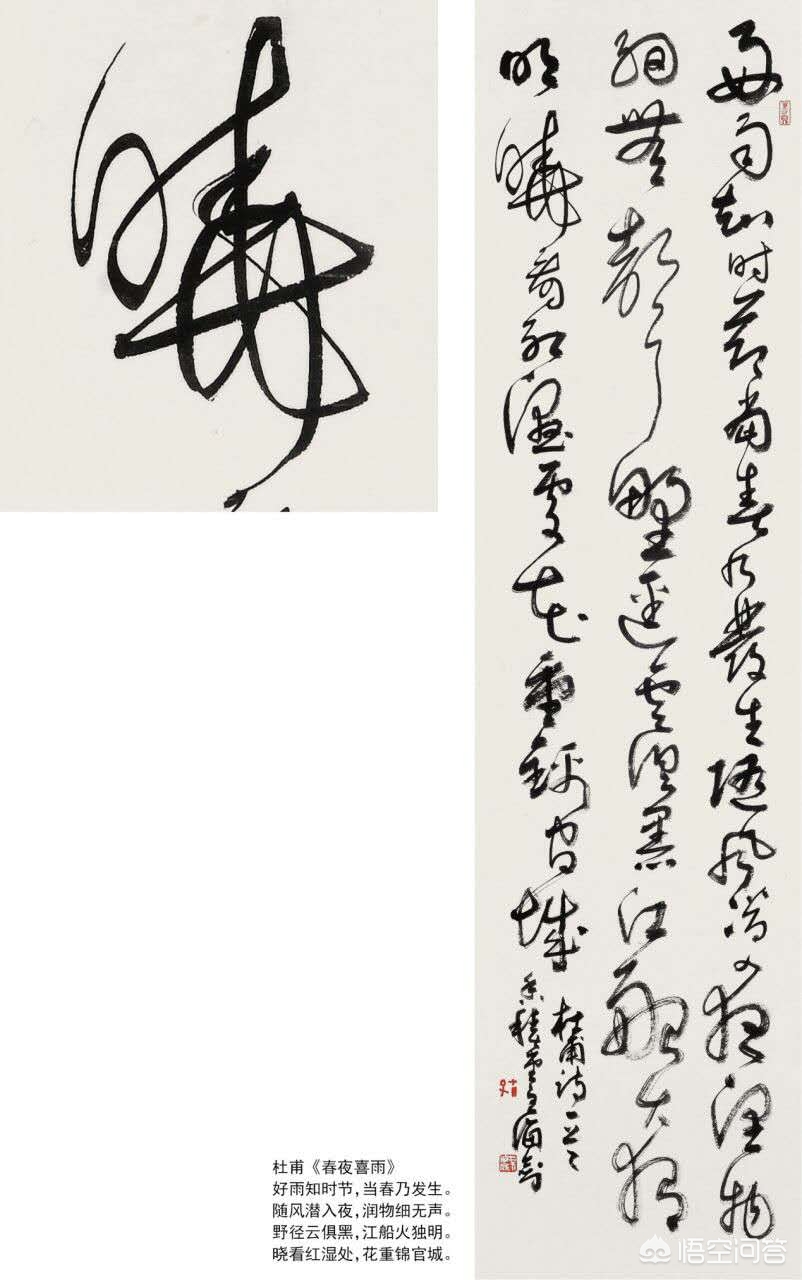 曉
好雨知时节當春乃發生随风潜入夜润物
細無聲野逕雲俱黑江船火獨
明曉看红濕處花重錦官城
杜甫诗
杜甫《春夜喜雨》
好雨知时节,当春乃发生。
随风潜入夜,润物细无声。
野径云俱黑,江船火独明。
晓看红湿处,花重锦官城。
悟空问答